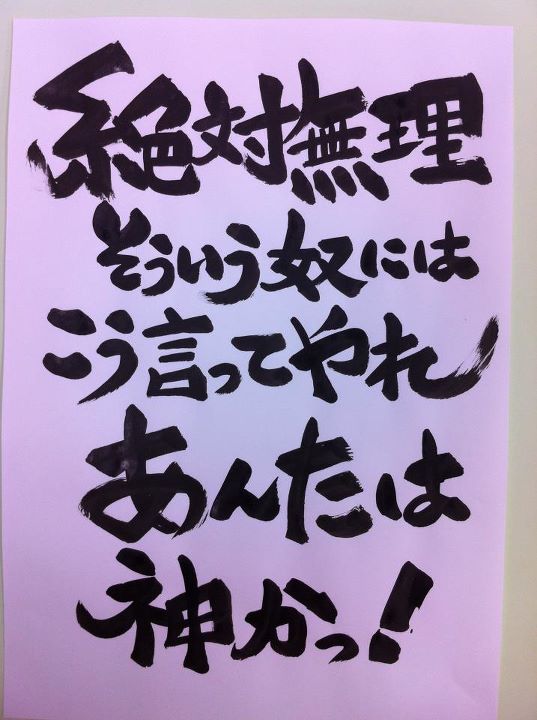 絶対無理
そういう奴には
こう言ってやれ
あんたは
神かっ!